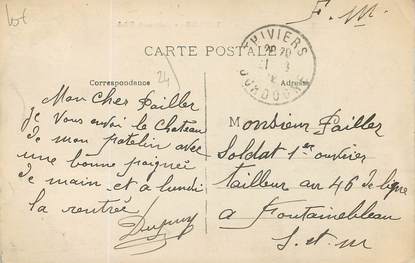 lot
F. M.
THIVIERS
20 20
21 3
DORDOGNE
CARTE POSTALE
Correspondance
Adresse
24
Mon cher Pailler
Je vous envoi le chateau
de mon patelin avec
une bonne poignée
de main et a lundi
la rentrée
Dupuy
Monsieur Pailler
Soldat 1er ouvrier
tailleur au 46 de ligne
a Fontainebleau
S. et M